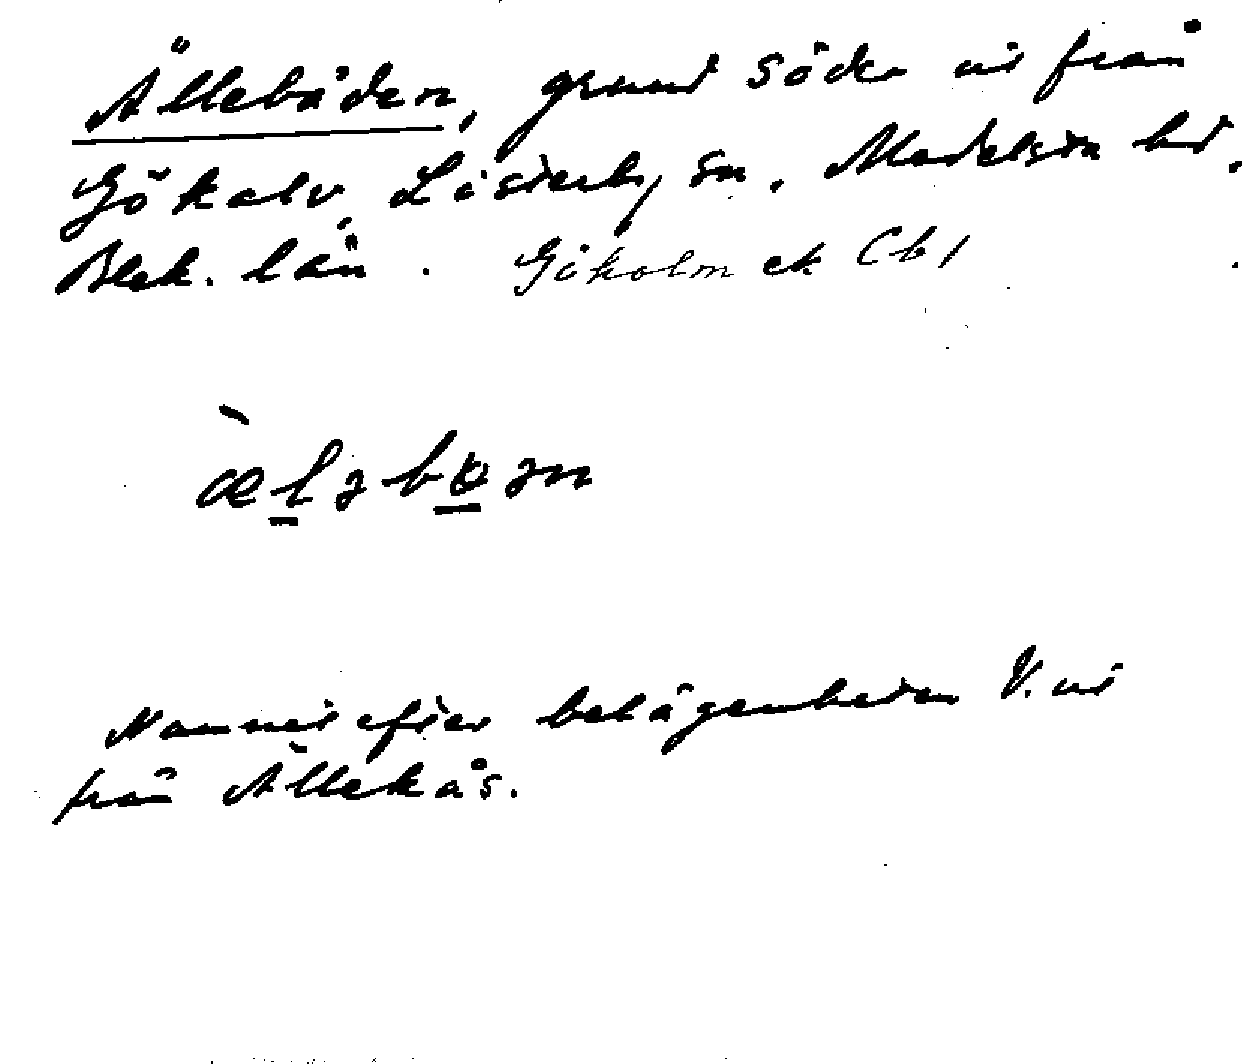 Ällebåden, grund söder ut från
Gökalv, Lösterby sn, Medelsta hd,
Blek. län. Gökolm ek (b)
Namnet efter belägenheten V. ut
från Ällekås.